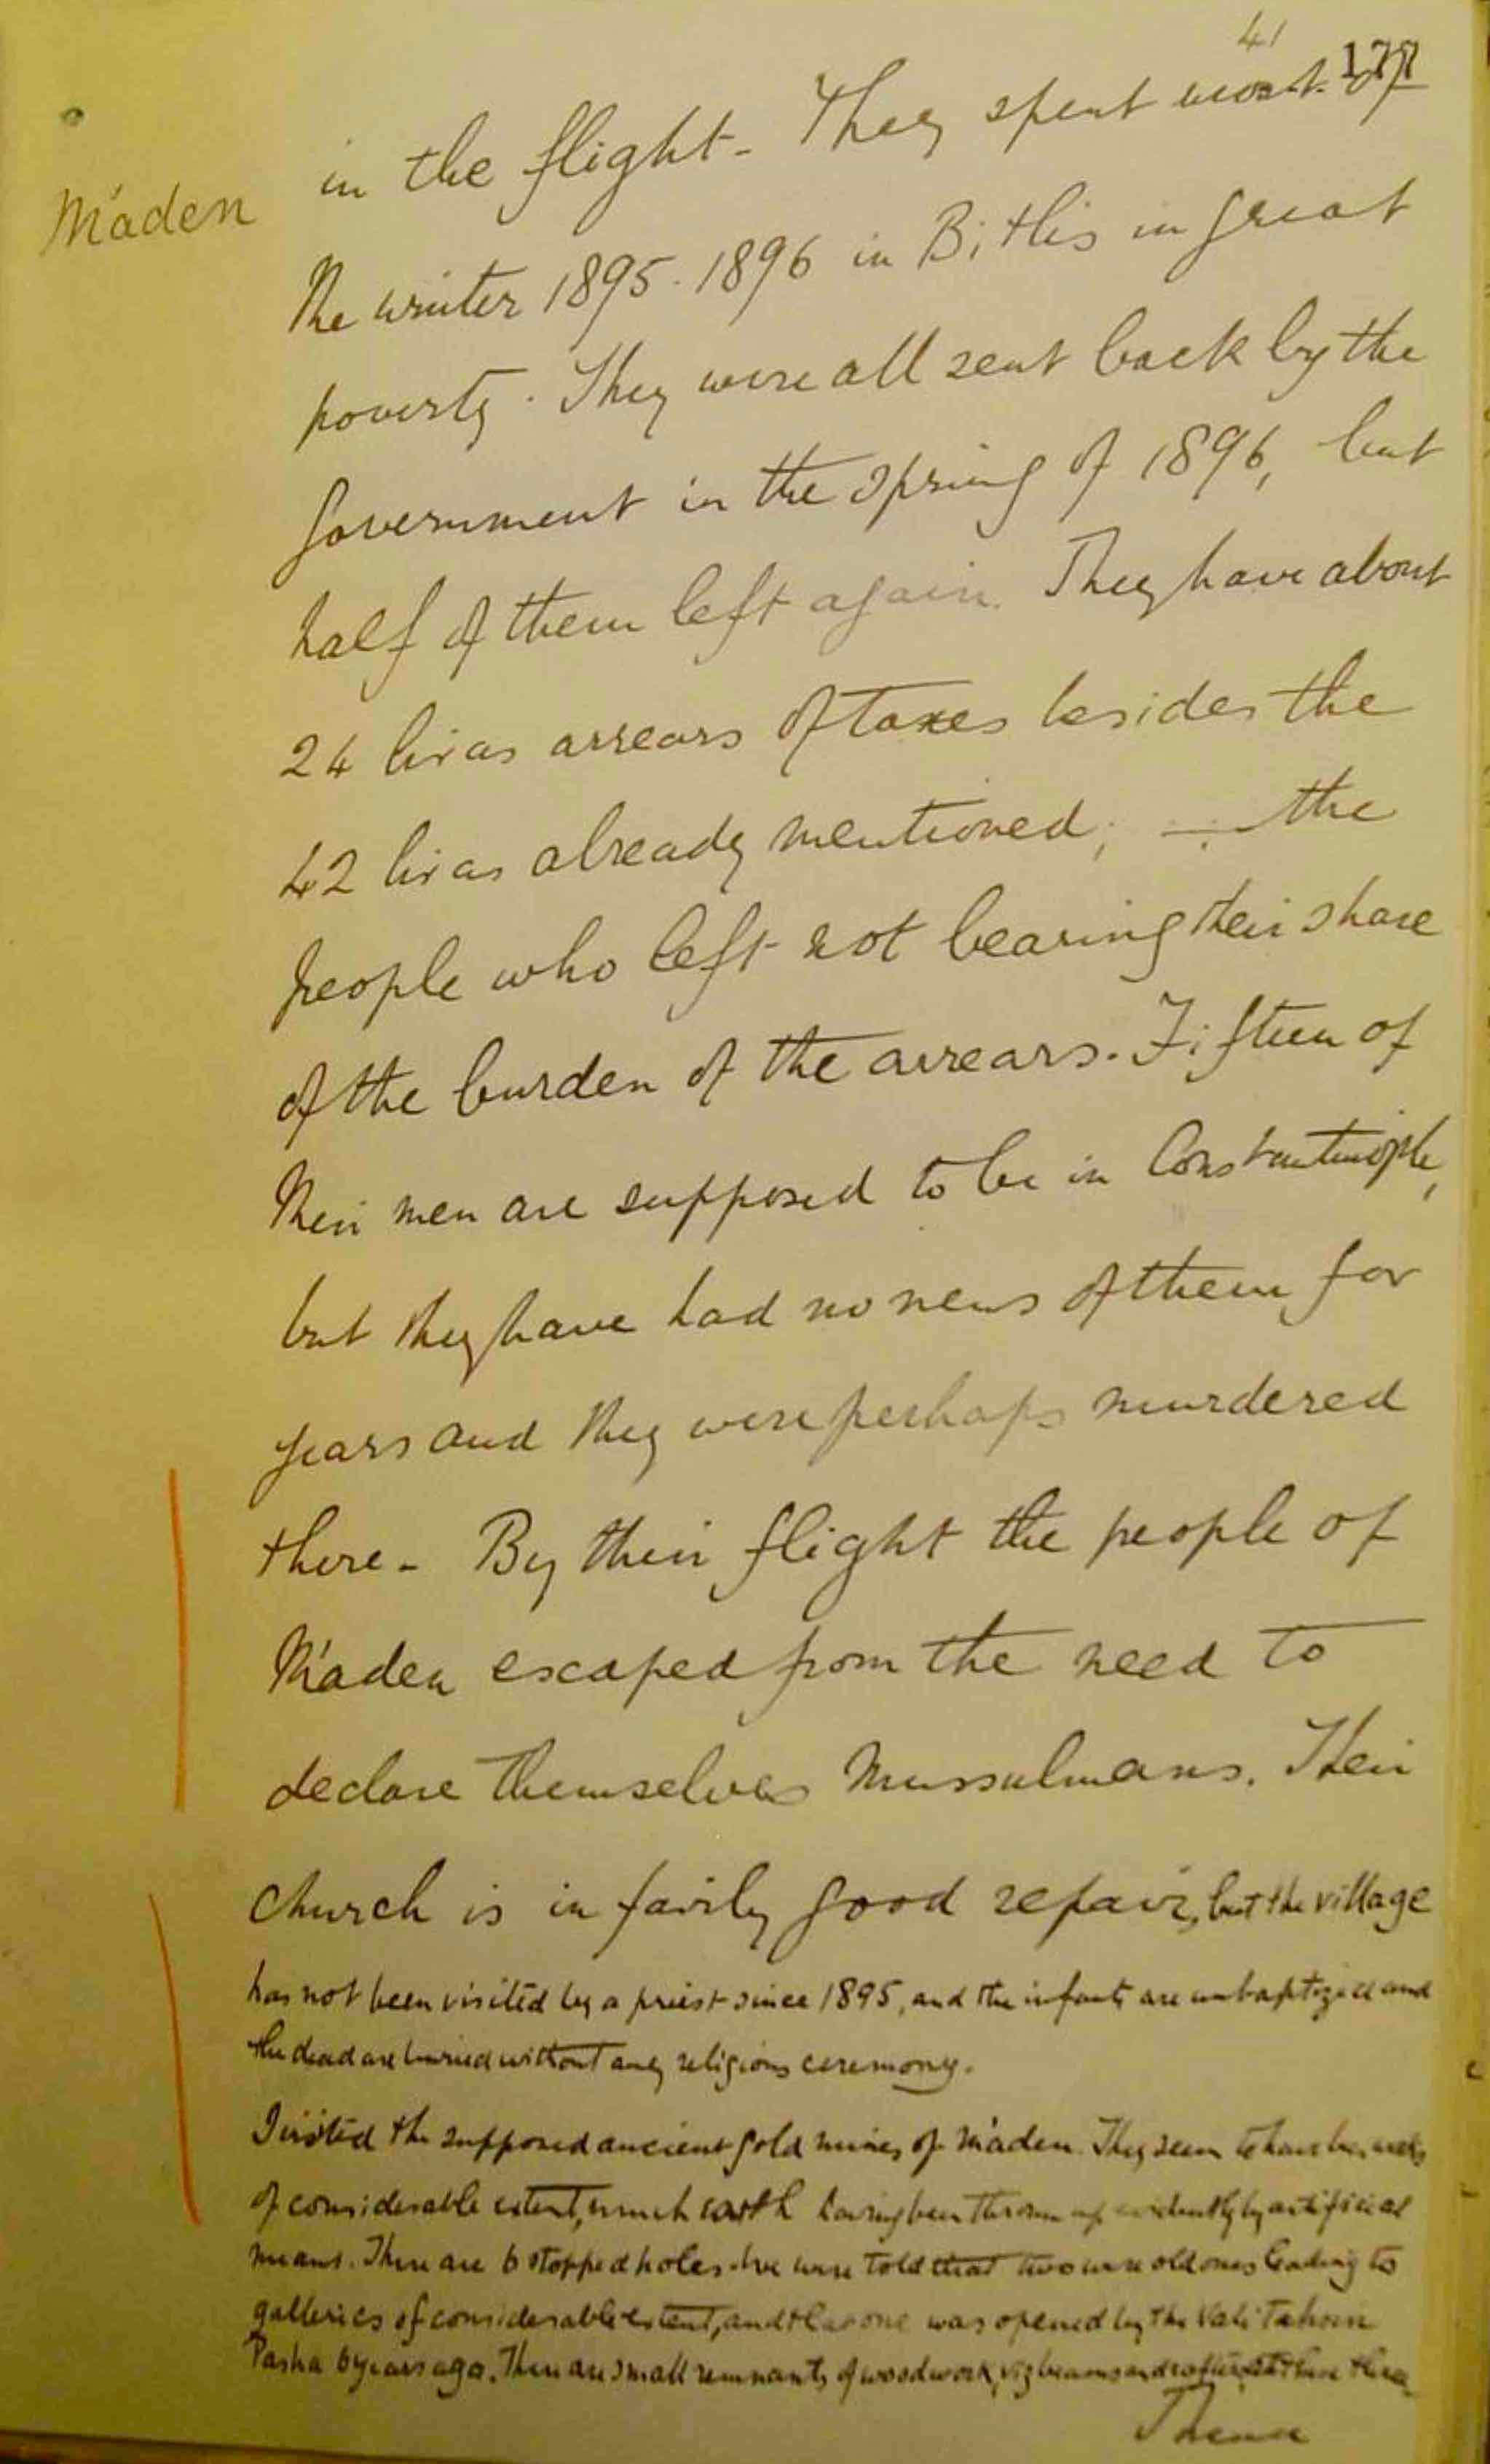 41
177
Máden
in the flight - They spent most of
the winter 1895-1896 in Bitlis in great
poverty. They were all sent back by the
government in the spring of 1896, but
half of them left again. They have about
24 liras arrears of taxes besides the
42 liras already mentioned; the
people who left not bearing their share
of the burden of the arrears. Fifteen of
their men are supposed to be in Constantinople,
but they have had no news of them for
years and they were perhaps murdered
there - By their flight the people of
Máden escaped from the need to
declare themselves Mussulmans. Their
church is in fairly good repair, but the village
has not been visited by a priest since 1895, and the infants are unbaptized and
the dead are buried without any religious ceremony.
I visited the supposed ancient gold mines of Máden. They seem to have been
of considerable extent, much earth having been thrown up evidently by artificial
means. There are 6 stopped holes. We were told that two were old ones leading to
galleries of considerable extent, and that one was opened by the Vali Tahsin
Pasha 6 years ago. There are small remnants of woodwork, viz beams and rafters